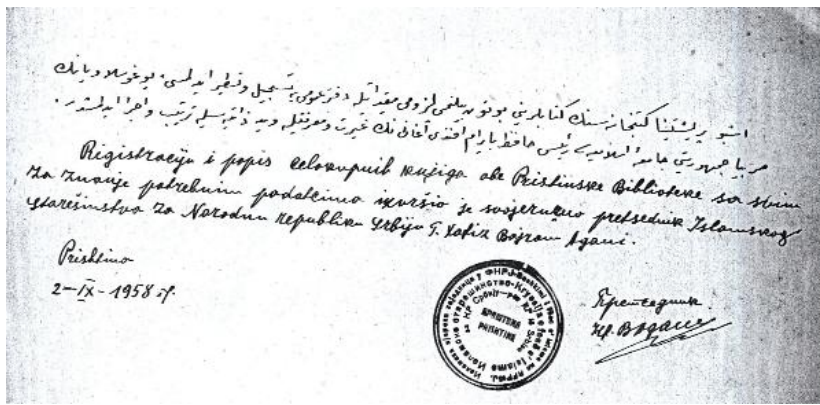 اشبو پرشتینا کتبخانه سنك کتابلرینی بوتون بیلنمی لزومی مقید اتله دفتر عمومی یه تسجیل و تنظیم ایدلمسی یوغوسلاویانك
صربیا جمهوریتی جامعه اسلامیت رئیسی حافظ بایرام افندی آغانی نك غیرت و معرفتیله وید ذاتیسیله ترتیب و اجرا ایدلمشدر.
Registraciju i popis celokupnih knjiga ove Prištinske Biblioteke sa svim
za znanje potrebnim podatcima izvršio je svojeručno pretsednik Islamskog
starešinstva za Narodnu republiku Srbiju G. Hafiz Bajram Agani.
Prishtina
2-IX-1958 g.
ПРИШТИНА
PRISHTINË
Претседник
H. B. Agani